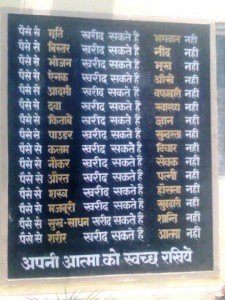 पैसे से मूर्ति खरीद सकते है भगवान नहीं
पैसे से बिस्तर खरीद सकते है नींद नहीं
पैसे से भोजन खरीद सकते है भूख नहीं
पैसे से ऐनक खरीद सकते है आँखे नहीं
पैसे से आदमी खरीद सकते है वफादारी नहीं
पैसे से दवा खरीद सकते है स्वास्थ्य नहीं
पैसे से किताबें खरीद सकते है ज्ञान नहीं
पैसे से पाउडर खरीद सकते है सुन्दरता नहीं
पैसे से कलम खरीद सकते है विचार नहीं
पैसे से नौकर खरीद सकते है सेवक नहीं
पैसे से औरत खरीद सकते है पत्नी नहीं
पैसे से शस्त्र खरीद सकते है हौसला नहीं
पैसे से मजबूरी खरीद सकते है खुद्दारी नहीं
पैसे से सुख-साधन खरीद सकते है शान्ति नहीं
पैसे से शरीर खरीद सकते है आत्मा नहीं
अपनी आत्मा को स्वच्छ रखिये